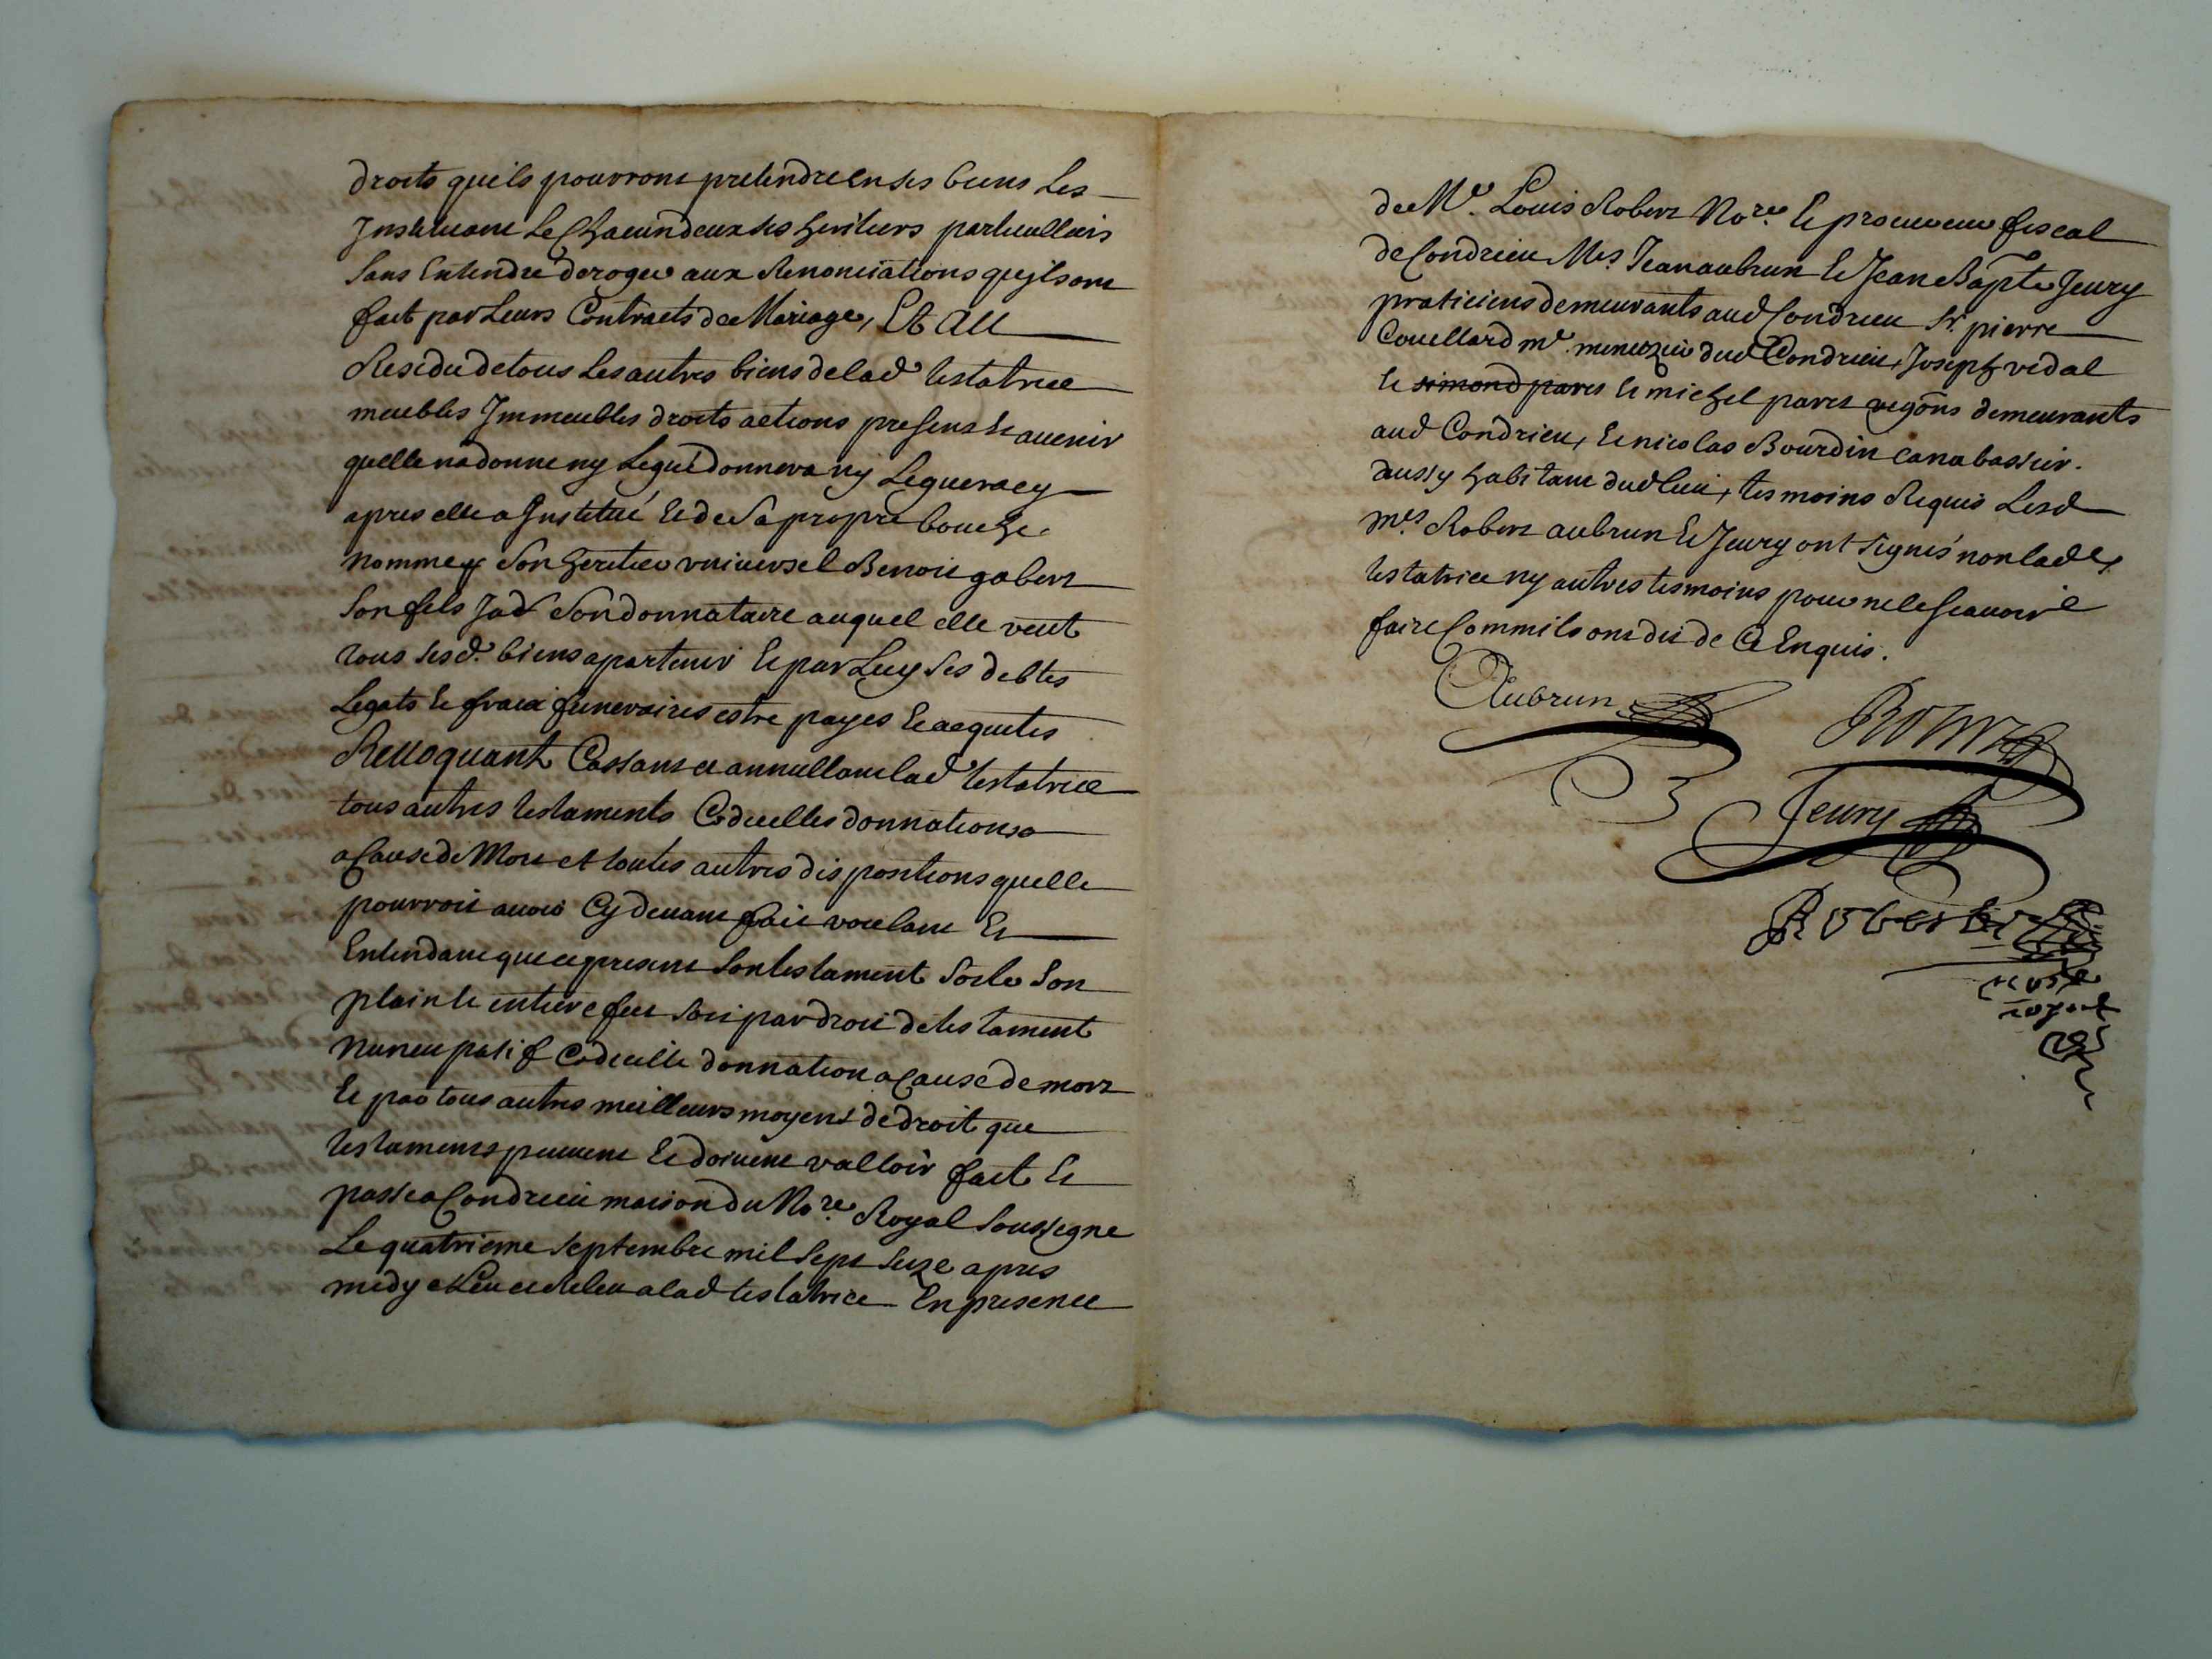 droits quils pouvront pretendre en ses biens Les
Instituant Le Chacun deux ses heritiers particulliers
sans Entendre deroger aux Renonciations quils ont
fait par Leurs Contracts de Mariage, Et au
Residu de tous Les autres biens de lad testatrice
meubles Immeubles droits actions presents Et auenir
quelle na donne ny Legué donnera ny Leguera cy
apres elle a Institué Et de Sa propre bouche
nomme Son heritier uniuersel Benoit gabert
Son fils Jad Son donnataire auquel elle veut
tous sesd. biens apartenir Et par Luy Ses debtes
Legats Et fraix funeraires estre payes Et acquites
Reuoquant Cassant et annullant lad testatrice
tous autres testaments Codicilles donnations
a Cause de Mort et toutes autres dispositions quelle
pourroit auoir Cy deuant fait voulant Et
Entendant que ce present Son testament Sorte Son
plain Et entier effet Soit par droit de testament
nuncupatif Codicille donnation a Cause de mort
Et par tous autres meilleurs moyens de droit que
testaments peuuent Et doiuent valloir fait Et
passe a Condrieu maison du No.re Royal Soussigne
Le quatrieme Septembre mil Sept Seize apres
midy et Leu et Releu a lad testatrice En presence
de Me. Louis Robert No.re Et procureur fiscal
de Condrieu Mes. Jean aubrun Et Jean Bapte Jeury
praticiens demeurants aud Condrieu Sr. pierre
Couellard me. menuzier dud Condrieu, Joseph vidal
Et simond paret Et michel paret vigons demeurants
aud Condrieu, Et nicolas Bourdin canabassier
aussy habitant dud lieu, tesmoins Requis Lesd
mes Robert aubrun Et Jeury ont signés non lad
testatrice ny autres tesmoins pour ne le scauoir
faire Comm ils ont dit de Ce Enquis.
Aubrun
Robert
Jeury
Robert
nore
royal